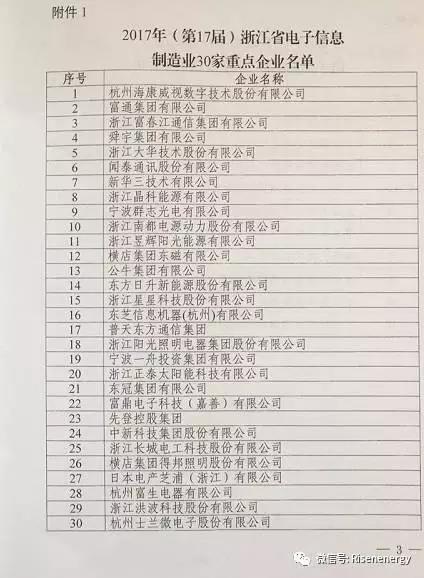 附件 1
2017年（第17届）浙江省电子信息
制造业30家重点企业名单
序号 企业名称
1 杭州海康威视数字技术股份有限公司
2 富通集团有限公司
3 浙江富春江通信集团有限公司
4 舜宇集团有限公司
5 浙江大华技术股份有限公司
6 闻泰通讯股份有限公司
7 新华三技术有限公司
8 浙江晶科能源有限公司
9 宁波群志光电有限公司
10 浙江南都电源动力股份有限公司
11 浙江昱辉阳光能源有限公司
12 横店集团东磁有限公司
13 公牛集团有限公司
14 东方日升新能源股份有限公司
15 浙江星星科技股份有限公司
16 东芝信息机器(杭州)有限公司
17 普天东方通信集团
18 浙江阳光照明电器集团股份有限公司
19 宁波一舟投资集团有限公司
20 浙江正泰太阳能科技有限公司
21 东冠集团有限公司
22 富鼎电子科技（嘉善）有限公司
23 先登控股集团
24 中新科技集团股份有限公司
25 浙江长城电工科技股份有限公司
26 横店集团得邦照明股份有限公司
27 日本电产芝浦（浙江）有限公司
28 杭州富生电器有限公司
29 浙江洪波科技股份有限公司
30 杭州士兰微电子股份有限公司
— 3 —
微信号: Risenenergy